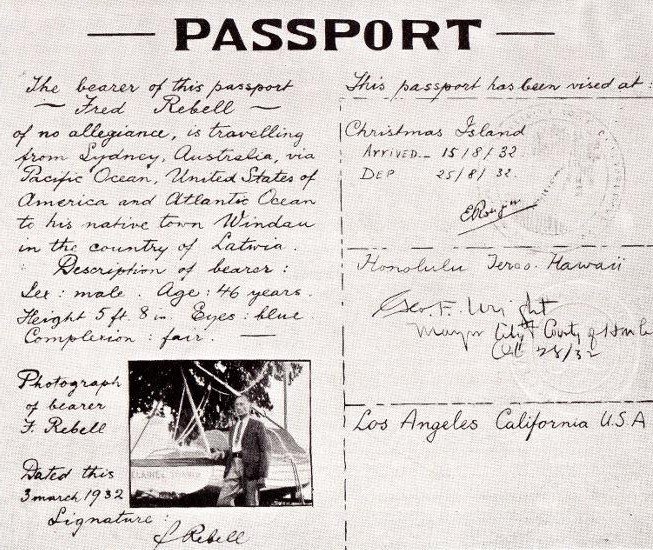 PASSPORT
The bearer of this passport
Fred Rebell
of no allegiance, is travelling
from Sydney, Australia, via
Pacific Ocean, United States of
America and Atlantic Ocean
to his native town Windau
in the country of Latvia.
Description of bearer:
Sex: male. Age: 46 years.
Height 5 ft. 8 in. Eyes: blue.
Complexion: fair.
Photograph
of bearer
F. Rebell
Dated this
3 march 1932
Signature:
F Rebell
This passport has been vised at:
Christmas Island
ARRIVED - 15/8/32
DEP 25/8/32
Honolulu Terr. Hawaii
Geo. F. Wright
Mayor City & County of
28/32
Los Angeles California U.S.A